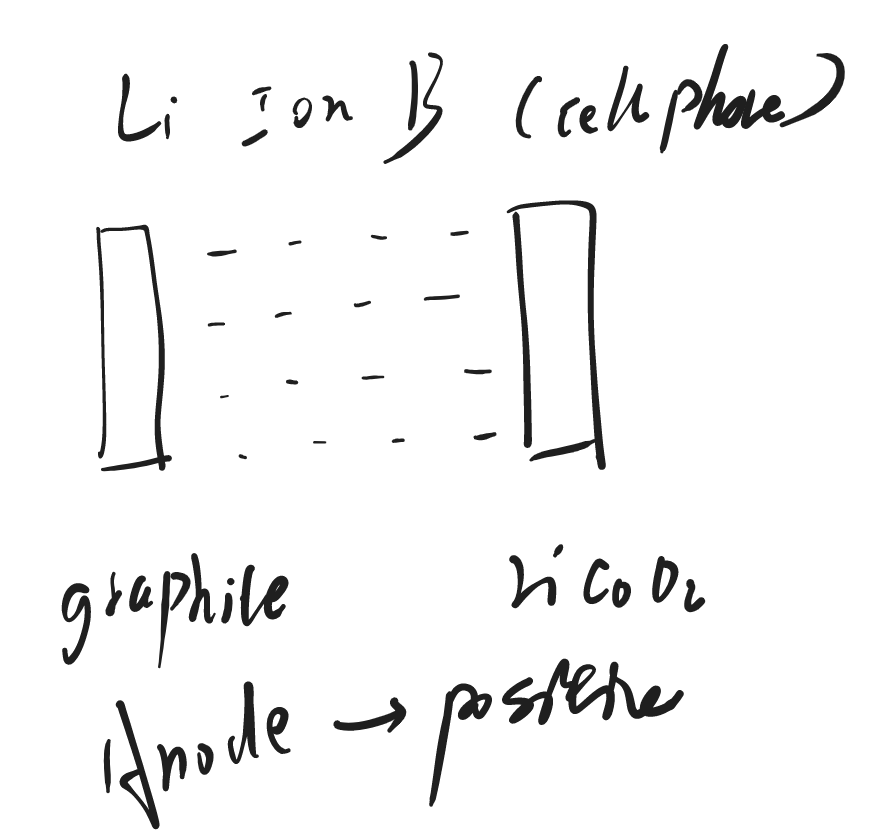 Li Ion B (cell phone)
graphite LiCoO₂
Anode → positive